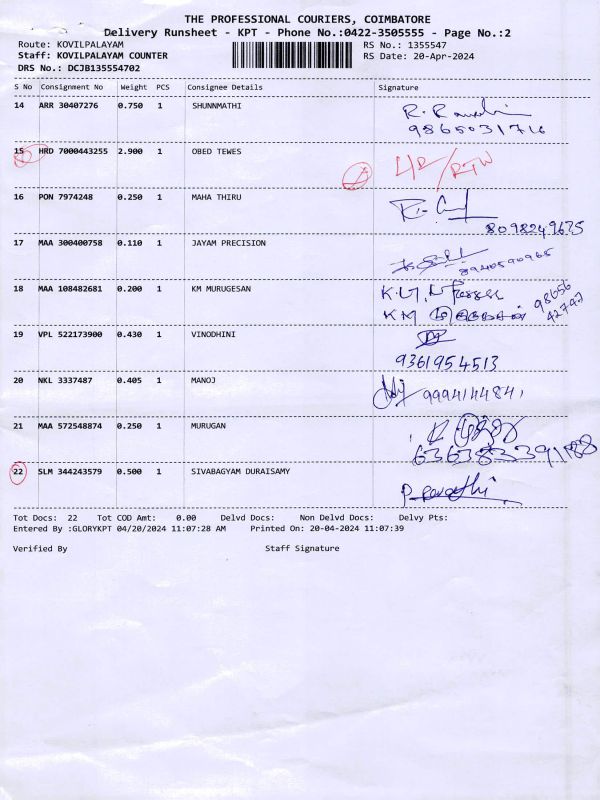 THE PROFESSIONAL COURIERS, COIMBATORE
Delivery Runsheet - KPT - Phone No.:0422-3505555 - Page No.:2
Route: KOVILPALAYAM RS No.: 1355547
Staff: KOVILPALAYAM COUNTER RS Date: 20-Apr-2024
DRS No.: DCJB135554702
S No Consignment No Weight PCS Consignee Details Signature
14 ARR 30407276 0.750 1 SHUNNMATHI
9865031716
15 HRD 7000443255 2.900 1 OBED TEWES
16 PON 7974248 0.250 1 MAHA THIRU
8098249675
17 MAA 300400758 0.110 1 JAYAM PRECISION
8940590965
18 MAA 108482681 0.200 1 KM MURUGESAN
KM
98656
42792
19 VPL 522173900 0.430 1 VINODHINI
9361954513
20 NKL 3337487 0.405 1 MANOJ
9994144841
21 MAA 572548874 0.250 1 MURUGAN
22 SLM 344243579 0.500 1 SIVABAGYAM DURAISAMY
Tot Docs: 22 Tot COD Amt: 0.00 Delvd Docs: Non Delvd Docs: Delvy Pts:
Entered By :GLORYKPT 04/20/2024 11:07:28 AM Printed On: 20-04-2024 11:07:39
Verified By Staff Signature